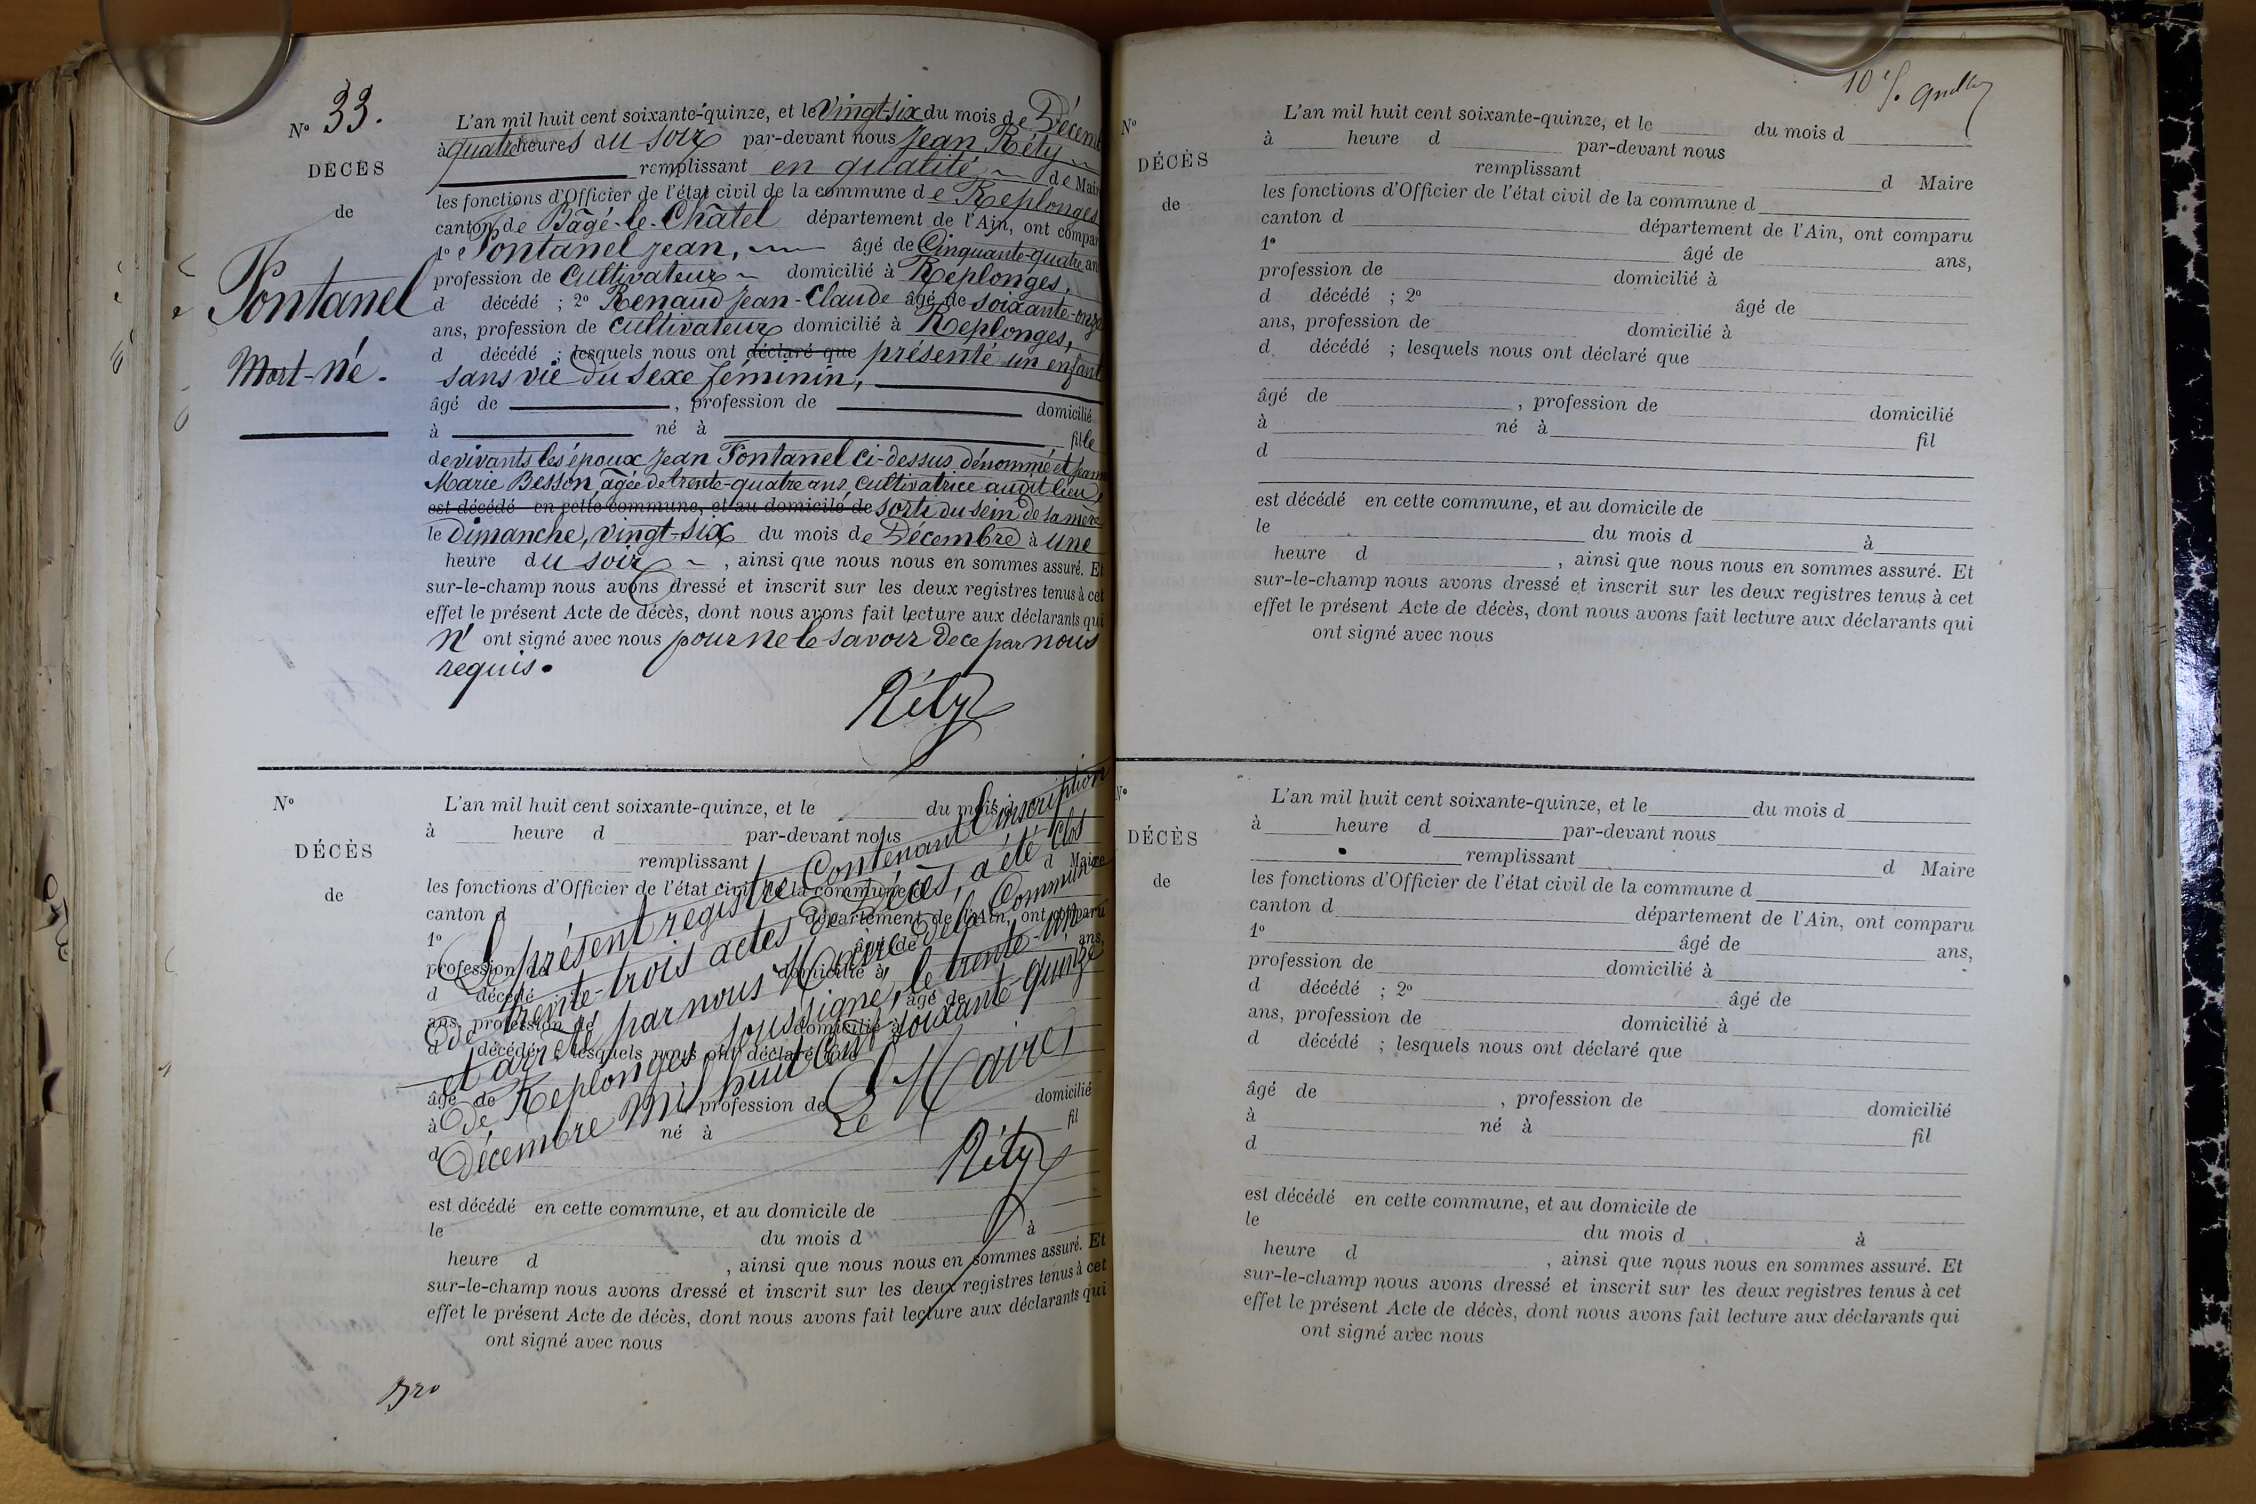 N° 33.
DÉCÈS
de
Fontanel
Mort-né.
L'an mil huit cent soixante-quinze, et le Vingt-six du mois de Décemb
à quatre heures du soir par-devant nous Jean Réty
remplissant en qualité de Mair
les fonctions d'Officier de l'état civil de la commune de Replonges
canton de Bâgé-le-Châtel département de l'Ain, ont compar
1° Fontanel Jean, âgé de Cinquante-quatre an
profession de Cultivateur domicilié à Replonges,
d décédé ; 2° Renaud Jean-Claude âgé de soixante-onze
ans, profession de cultivateur domicilié à Replonges,
d décédé ; lesquels nous ont déclaré que présenté un enfant
sans vie du sexe féminin,
âgé de , profession de domicilié
à né à fille
de vivants les époux Jean Fontanel ci-dessus dénommé et Jeanne
Marie Besson, âgée de trente-quatre ans, cultivatrice audit lieu,
est décédé en cette commune, et au domicile de sorti du sein de sa mère
le Dimanche, vingt-six du mois de Décembre à une
heure du soir , ainsi que nous nous en sommes assuré. Et
sur-le-champ nous avons dressé et inscrit sur les deux registres tenus à cet
effet le présent Acte de décès, dont nous avons fait lecture aux déclarants qui
n' ont signé avec nous pour ne le savoir de ce par nous
requis.
Réty
N°
DÉCÈS
de
L'an mil huit cent soixante-quinze, et le du mois d
à heure d par-devant nous
remplissant d Maire
les fonctions d'Officier de l'état civil de la commune d
canton d département de l'Ain, ont comparu
1° âgé de ans,
profession de domicilié à
d décédé ; 2° âgé de
ans, profession de domicilié à
d décédé ; lesquels nous ont déclaré que
âgé de , profession de domicilié
à né à fil
d
Le présent registre Contenant l'inscription
de trente-trois actes de Décès, a été clos
et arrêté par nous Maire de la Commune
de Replonges, soussigné, le trente-un
Décembre mil huit cent soixante-quinze
Le Maire
Réty
est décédé en cette commune, et au domicile de
le du mois d à
heure d , ainsi que nous nous en sommes assuré. Et
sur-le-champ nous avons dressé et inscrit sur les deux registres tenus à cet
effet le présent Acte de décès, dont nous avons fait lecture aux déclarants qui
ont signé avec nous
N°
DÉCÈS
de
L'an mil huit cent soixante-quinze, et le du mois d
à heure d par-devant nous
remplissant d Maire
les fonctions d'Officier de l'état civil de la commune d
canton d département de l'Ain, ont comparu
1° âgé de ans,
profession de domicilié à
d décédé ; 2° âgé de
ans, profession de domicilié à
d décédé ; lesquels nous ont déclaré que
âgé de , profession de domicilié
à né à fil
d
est décédé en cette commune, et au domicile de
le du mois d à
heure d , ainsi que nous nous en sommes assuré. Et
sur-le-champ nous avons dressé et inscrit sur les deux registres tenus à cet
effet le présent Acte de décès, dont nous avons fait lecture aux déclarants qui
ont signé avec nous
N°
DÉCÈS
de
L'an mil huit cent soixante-quinze, et le du mois d
à heure d par-devant nous
remplissant d Maire
les fonctions d'Officier de l'état civil de la commune d
canton d département de l'Ain, ont comparu
1° âgé de ans,
profession de domicilié à
d décédé ; 2° âgé de
ans, profession de domicilié à
d décédé ; lesquels nous ont déclaré que
âgé de , profession de domicilié
à né à fil
d
est décédé en cette commune, et au domicile de
le du mois d à
heure d , ainsi que nous nous en sommes assuré. Et
sur-le-champ nous avons dressé et inscrit sur les deux registres tenus à cet
effet le présent Acte de décès, dont nous avons fait lecture aux déclarants qui
ont signé avec nous